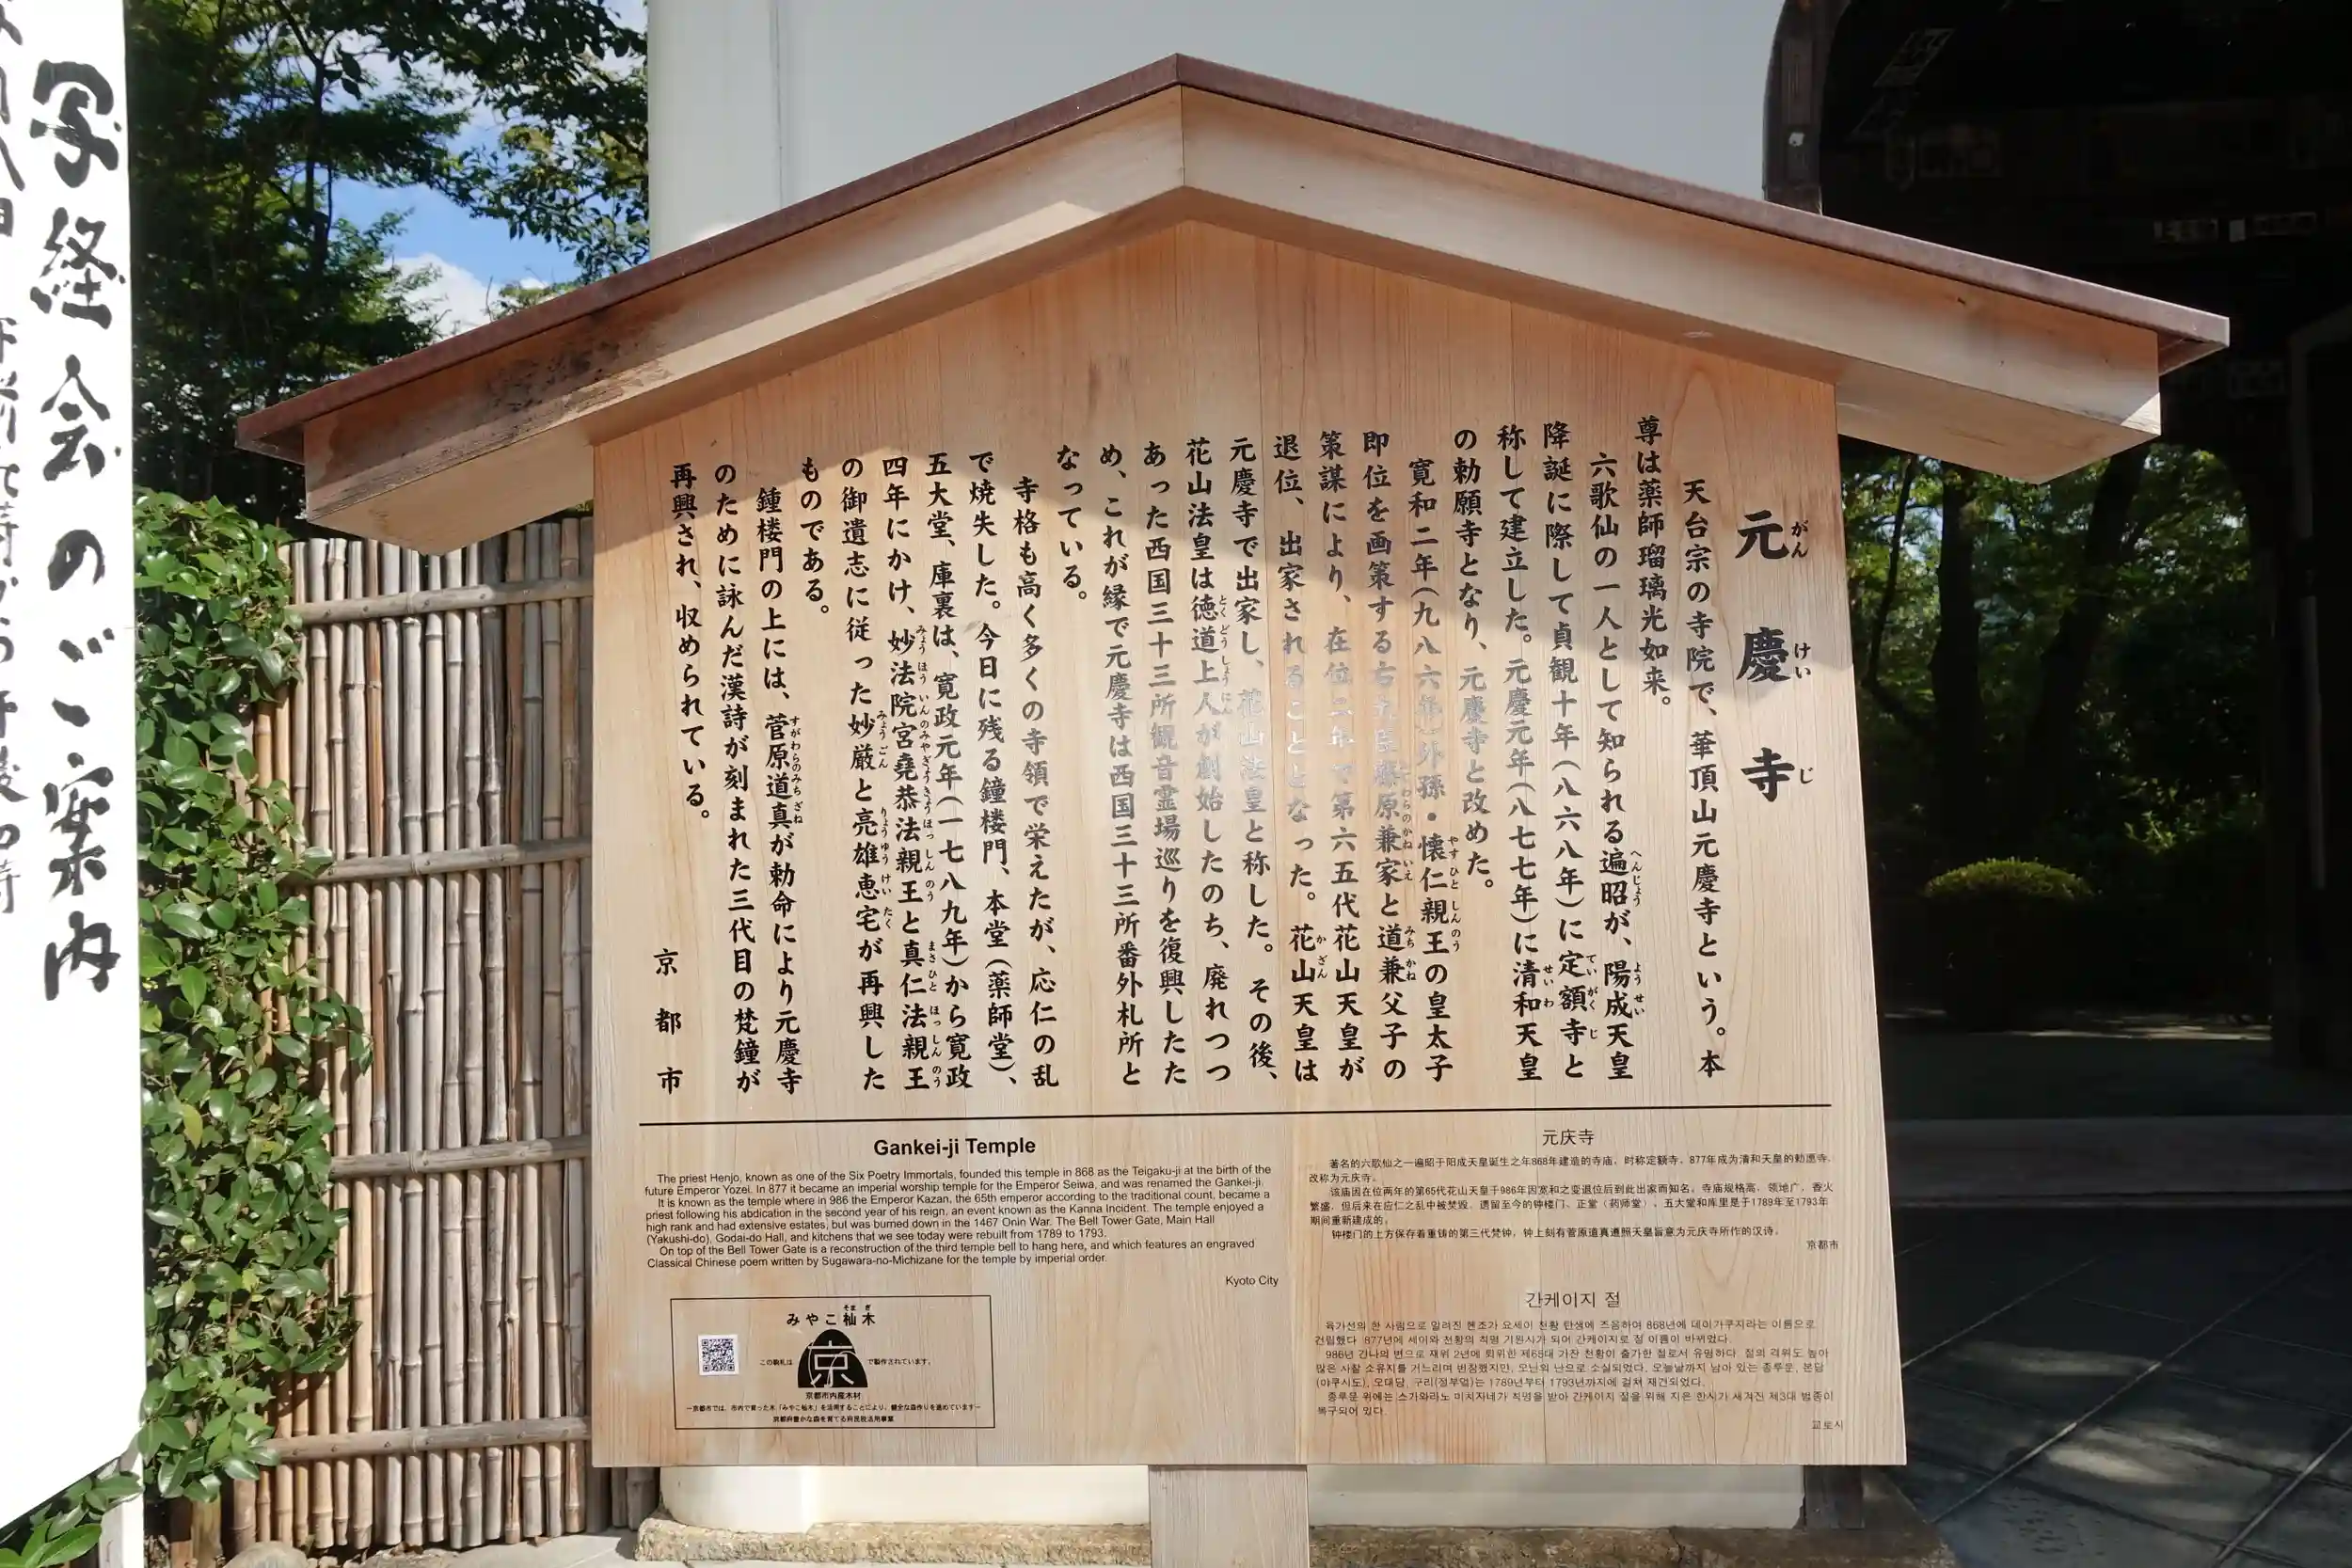 写経会のご案内
元慶寺
がんけいじ
天台宗の寺院で、華頂山元慶寺という。本
尊は薬師瑠璃光如来。
六歌仙の一人として知られる遍昭が、陽成天皇
降誕に際して貞観十年(八六八年)に定額寺と
称して建立した。元慶元年(八七七年)に清和天皇
の勅願寺となり、元慶寺と改めた。
寛和二年(九八六年)外孫・懐仁親王の皇太子
即位を画策する右大臣藤原兼家と道兼父子の
策謀により、在位二年で第六五代花山天皇が
退位、出家されることとなった。花山天皇は
元慶寺で出家し、花山法皇と称した。その後、
花山法皇は徳道上人が創始したのち、廃れつつ
あった西国三十三所観音霊場巡りを復興したた
め、これが縁で元慶寺は西国三十三所番外札所と
なっている。
寺格も高く多くの寺領で栄えたが、応仁の乱
で焼失した。今日に残る鐘楼門、本堂(薬師堂)、
五大堂、庫裏は、寛政元年(一七八九年)から寛政
四年にかけ、妙法院宮堯恭法親王と真仁法親王
の御遺志に従った妙厳と亮雄恵宅が再興した
ものである。
鐘楼門の上には、菅原道真が勅命により元慶寺
のために詠んだ漢詩が刻まれた三代目の梵鐘が
再興され、収められている。
京都市
Gankei-ji Temple
The priest Henjo, known as one of the Six Poetry Immortals, founded this temple in 868 as the Teigaku-ji at the birth of the
future Emperor Yozei. In 877 it became an imperial worship temple for the Emperor Seiwa, and was renamed the Gankei-ji.
It is known as the temple where in 986 the Emperor Kazan, the 65th emperor according to the traditional count, became a
priest following his abdication in the second year of his reign, an event known as the Kanna Incident. The temple enjoyed a
high rank and had extensive estates, but was burned down in the 1467 Onin War. The Bell Tower Gate, Main Hall
(Yakushi-do), Godai-do Hall, and kitchens that we see today were rebuilt from 1789 to 1793.
On top of the Bell Tower Gate is a reconstruction of the third temple bell to hang here, and which features an engraved
Classical Chinese poem written by Sugawara-no-Michizane for the temple by imperial order.
Kyoto City
元庆寺
著名的六歌仙之一遍昭于阳成天皇诞生之年868年建造的寺庙，时称定额寺，877年成为清和天皇的勅愿寺，
改称为元庆寺。
该庙因在位两年的第65代花山天皇于986年因宽和之变退位后到此出家而知名，寺庙规格高，领地广，香火
繁盛，但后来在应仁之乱中被焚毁，遗留至今的钟楼门、正堂（药师堂）、五大堂和库里是于1789年至1793年
期间重新建成的。
钟楼门的上方保存着重铸的第三代梵钟，钟上刻有菅原道真遵照天皇旨意为元庆寺所作的汉诗。
京都市
간케이지 절
육가선의 한 사람으로 알려진 헨조가 요세이 천황 탄생에 즈음하여 868년에 데이가쿠지라는 이름으로
건립했다. 877년에 세이와 천황의 칙명 기원사가 되어 간케이지로 절 이름이 바뀌었다.
986년 간나의 변으로 재위 2년에 퇴위한 제65대 가잔 천황이 출가한 절로서 유명하다. 절의 격위도 높아
많은 사찰 소유지를 거느리며 번창했지만, 오닌의 난으로 소실되었다. 오늘날까지 남아 있는 종루문, 본당
(야쿠시도), 오대당, 구리(정부엌)는 1789년부터 1793년까지에 걸쳐 재건되었다.
종루문 위에는 스가와라노 미치자네가 칙명을 받아 간케이지 절을 위해 지은 한시가 새겨진 제3대 범종이
복구되어 있다.
교토시
みやこ杣木
そまぎ
この駒札は
京
で製作されています。
京都市内産木材
ー京都市では、市内で育った木「みやこ杣木」を活用することにより、健全な森作りを進めていますー
京都府豊かな森を育てる府民税活用事業